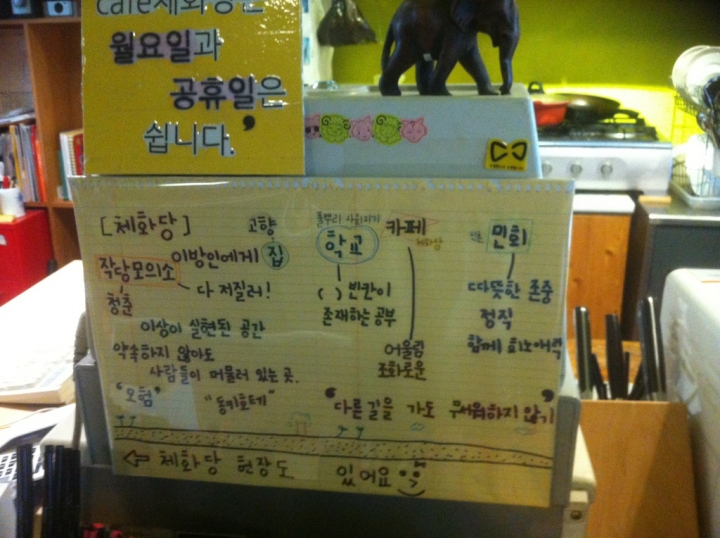 cafe체화당은
월요일과
공휴일은
쉽니다.
[체화당]
고향
이방인에게 집
작당모의소
청춘
다 저질러!
이상이 실현된 공간
약속하지 않아도
사람들이 머물러 있는 곳.
"모험"
"동키호테"
풀뿌리 사회지기
학교
( ) 빈칸이
존재하는 공부
카페
어울림
조화로운
신촌 민회
따뜻한 존중
정직
함께
'다른길을 가도 무서워하지 않기'
← 체화당 현장도 있어요